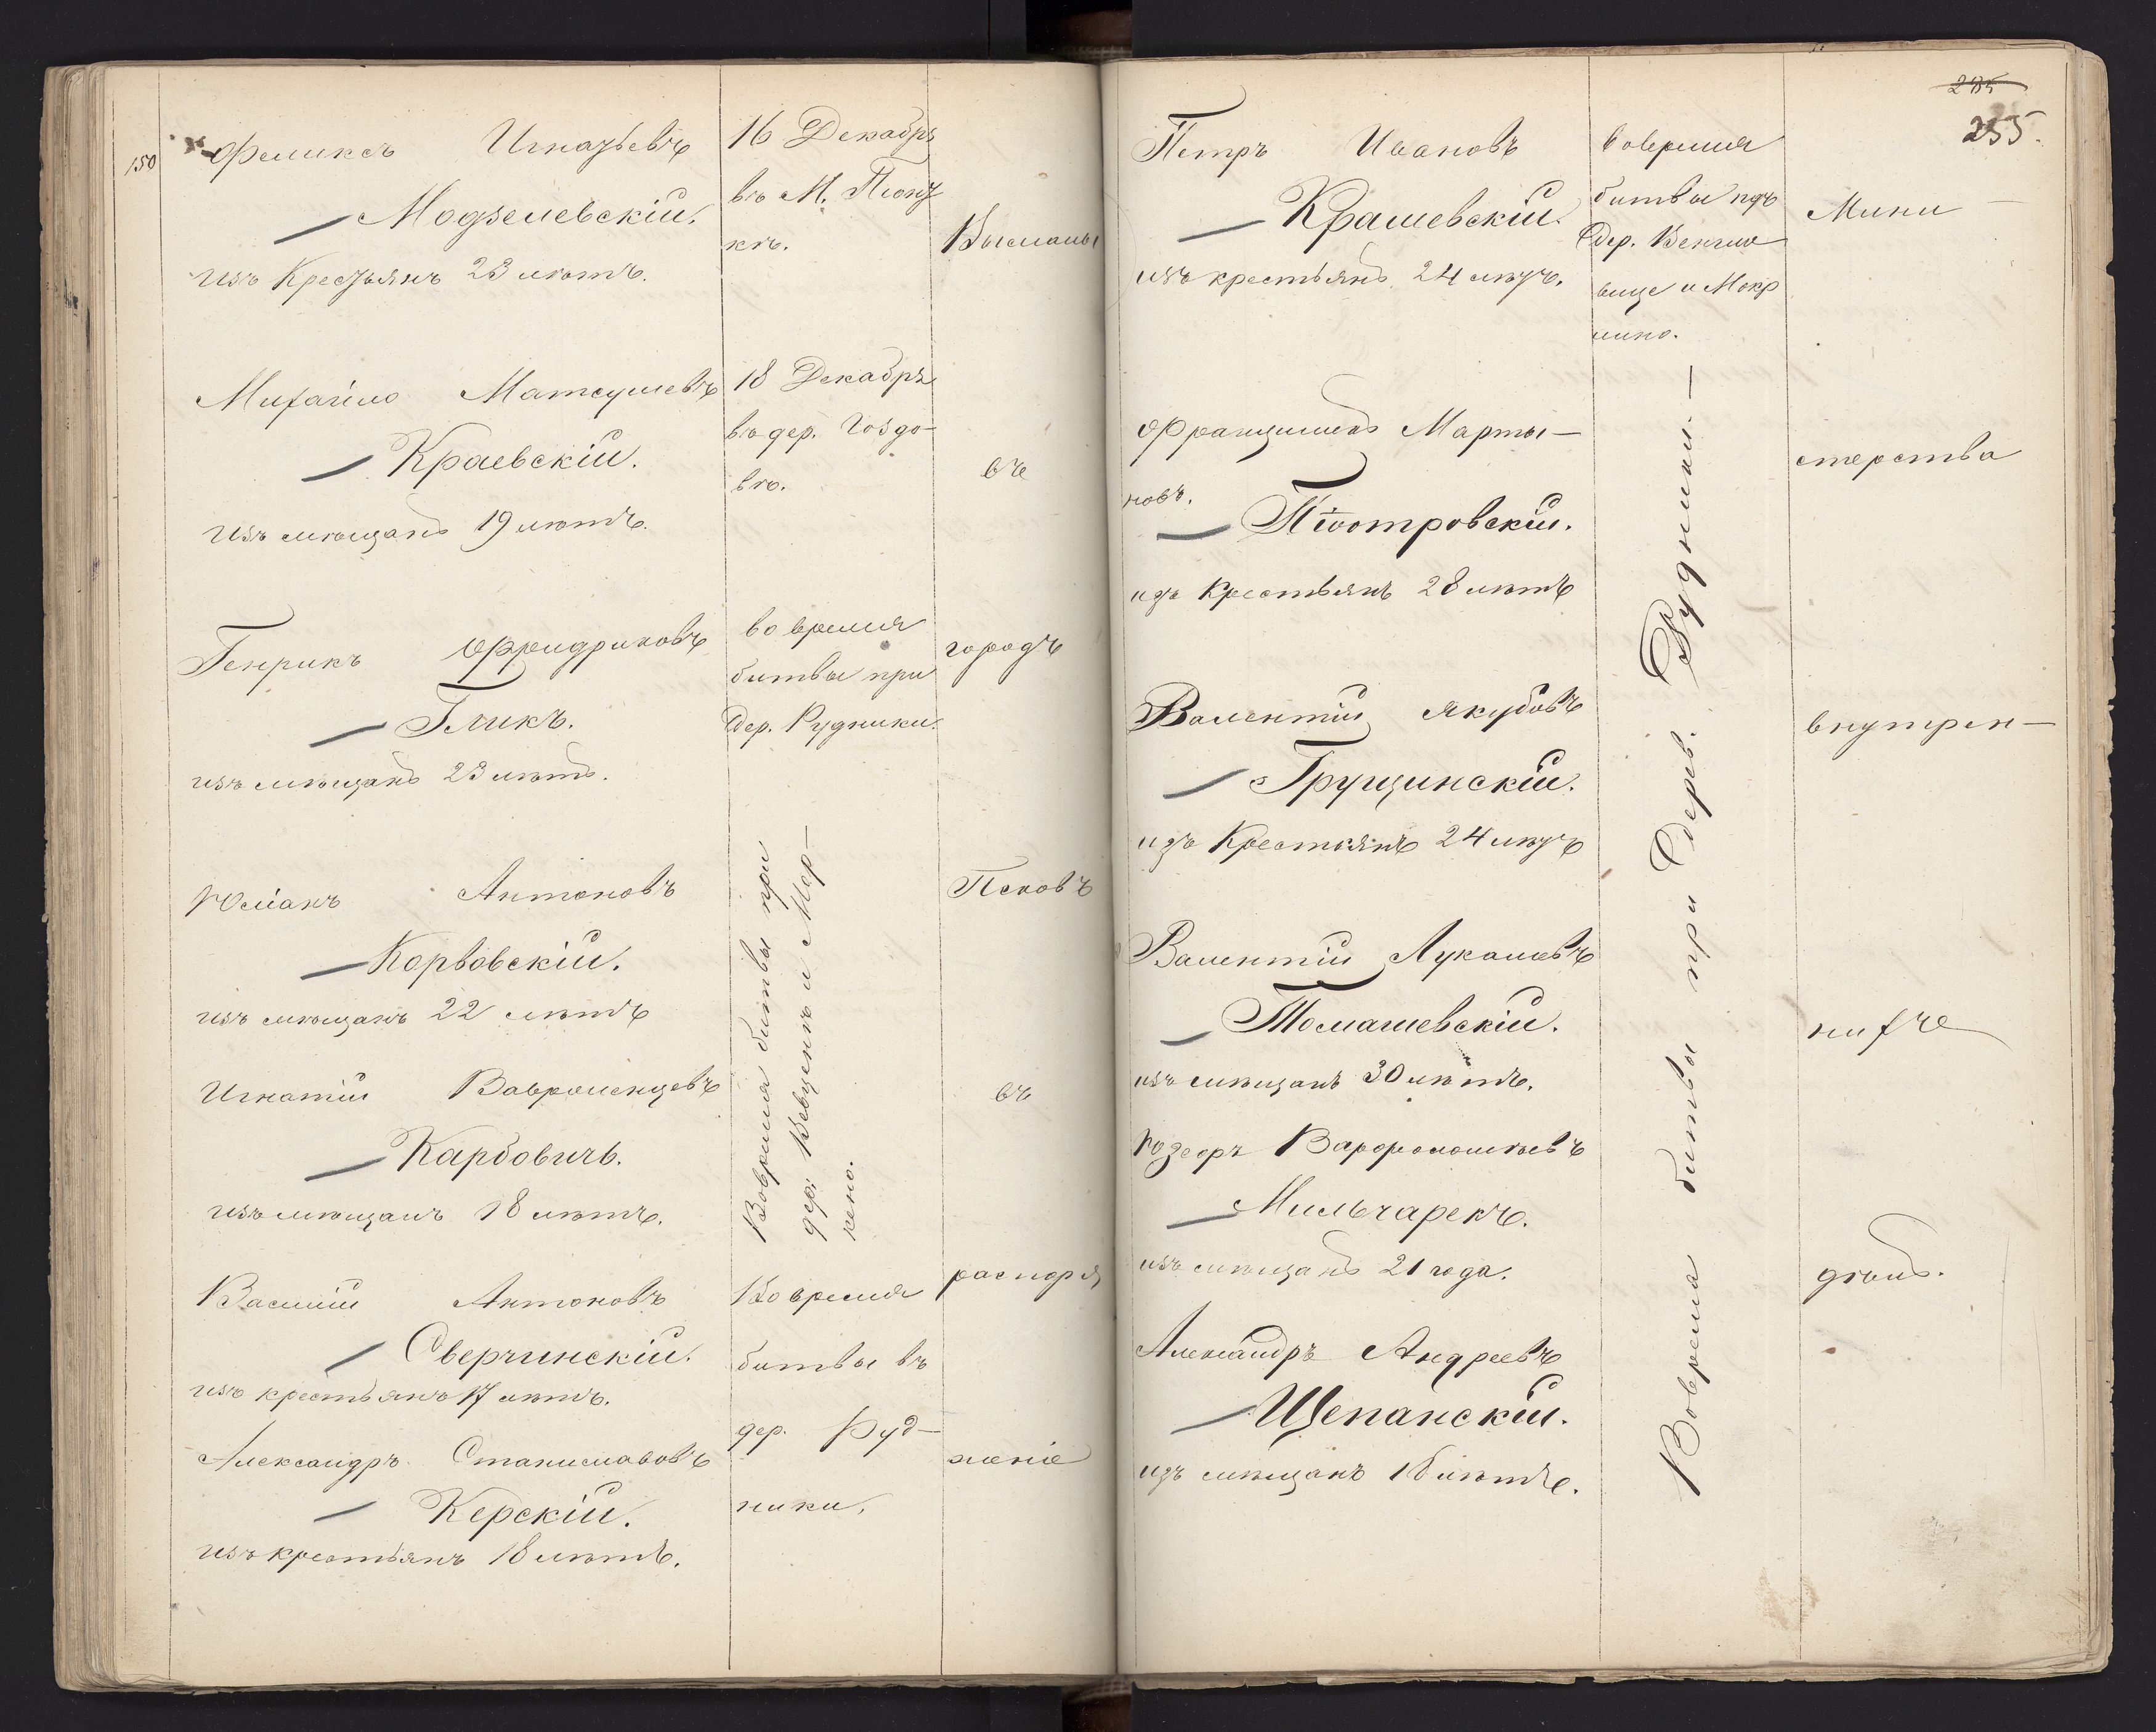 150
Феликсъ Игнатьевъ
Модзелевскій.
изъ Крестьянъ 23 лѣтъ.
16 Декабря
въ М. Піонт
кѣ.
Высланы
Михайло Матеушевъ
Краевскій.
изъ мѣщанъ 19 лѣтъ.
18 Декабря
въ дер. Гоздо-
вѣ.
въ
Генрикъ Фридриховъ
Гликъ.
изъ мѣщанъ 23 лѣтъ.
во время
битвы при
дер. Рудники.
городъ
Юліанъ Антоновъ
Корвовскій.
изъ мѣщанъ 22 лѣтъ
Вовремя битвы при
дер:
и Мор-
Псковъ
Игнатій
Карбовичъ.
изъ мѣщанъ 18 лѣтъ.
въ
Василій Антоновъ
Сверчинскій.
изъ крестьянъ 17 лѣтъ.
Во время
битвы въ
дер. Руд-
ники.
распоря
Александръ Станиславовъ
Керскій.
изъ крестьянъ 18 лѣтъ.
женіе
285
255.
Петръ Ивановъ
Крашевскій.
изъ крестьянъ 24 лѣтъ.
вовремя
битвы при
дер.
и Мокр
Мини-
Францишекъ Марты-
новъ.
Піотровскій.
изъ Крестьянъ 28 лѣтъ
стерства
Валентій Якубовъ
Грущинскій.
изъ Крестьянъ 24 лѣтъ
внутрен-
Валентій Лукашевъ
Томашевскій.
изъ мѣщанъ 30 лѣтъ.
нихъ
Варфоломѣевъ
Мильчарекъ.
изъ мѣщанъ 21 года.
дѣлъ.
Александръ Андреевъ
Щепанскій.
изъ мѣщанъ 18 лѣтъ.
Вовремя битвы при дерев. Рудники.-